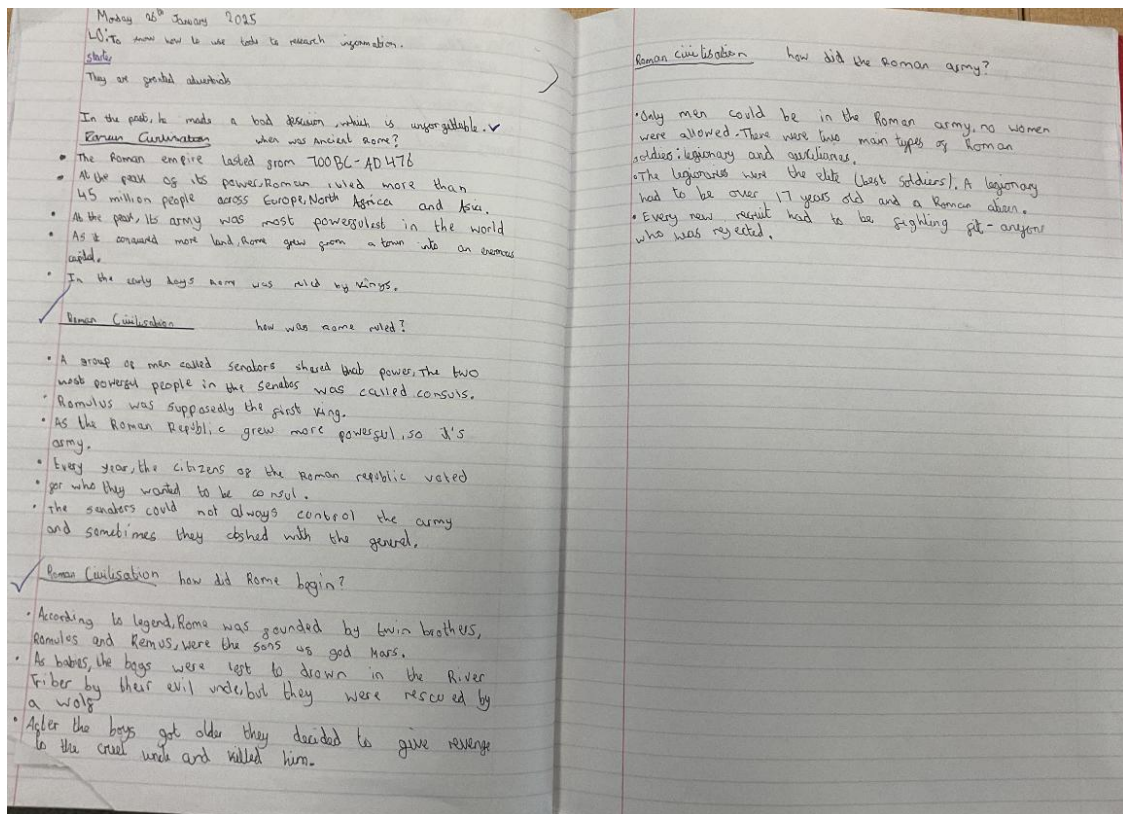 Monday 26th January 2025
LO: To know how to use tools to research information.
Starter
They are fronted adverbials
In the past, he made a bad decision, which is unforgettable.
Roman Civilisation when was Ancient Rome?
• The Roman empire lasted from 700BC-AD476
• At the peak of its power, Roman ruled more than
45 million people across Europe, North Africa and Asia.
• At the peak, its army was most powerfulest in the world
• As it conquered more land, Rome grew from a town into an enormous
capital.
• In the early days Rome was ruled by kings.
Roman Civilisation how was Rome ruled?
• A group of men called senators shared that power, The two
most powerful people in the senates was called consuls.
• Romulus was supposedly the first king.
• As the Roman Republic grew more powerful, so it's
army.
• Every year, the citizens of the Roman republic voted
• for who they wanted to be consul.
• The senators could not always control the army
and sometimes they clashed with the general.
Roman Civilisation how did Rome begin?
• According to legend, Rome was founded by twin brothers,
Romulus and Remus, were the sons of god Mars.
• As babies, the boys were left to drown in the River
Triber by their evil uncle, but they were rescued by
a wolf
• After the boys got older they decided to give revenge
to the cruel uncle and killed him.
Roman civilisation how did the Roman army?
• Only men could be in the Roman army, no women
were allowed. There were two main types of Roman
soldier: legionary and auxiliaries.
• The legionaries were the elite (best soldiers). A legionary
had to be over 17 years old and a Roman
• Every new recruit had to be fighting fit - anyone
who was rejected.